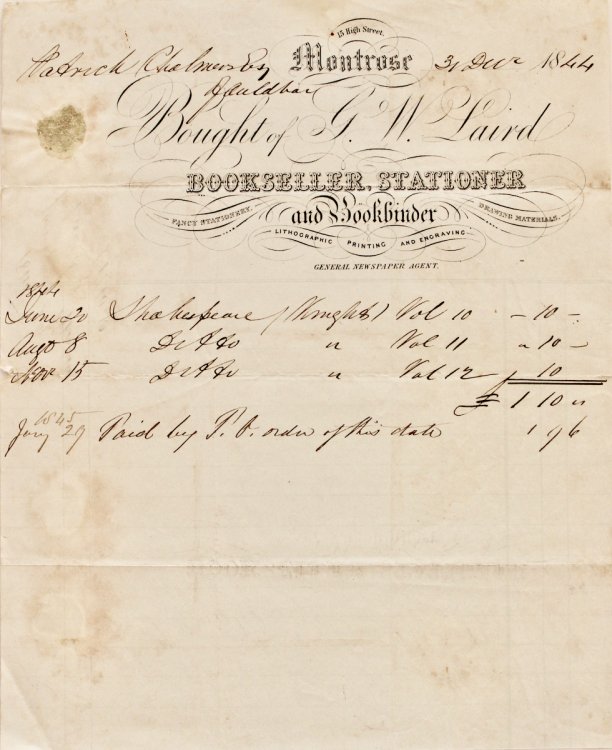 15 High Street.
Patrick Chalmers Esq Montrose 31 Decr 1844
Auldbar
Bought of G. W. Laird
BOOKSELLER, STATIONER
FANCY STATIONERY, and Bookbinder DRAWING MATERIALS.
LITHOGRAPHIC PRINTING AND ENGRAVING
GENERAL NEWSPAPER AGENT.
1844
June 20 Shakespeare (Knights) Vol 10 - 10 -
Augt 8 Ditto " Vol 11 " 10 -
Novr 15 Ditto " Vol 12 10
£ 1 10 "
1845
Jany 29 Paid by P. O. order of this date 1 9 6